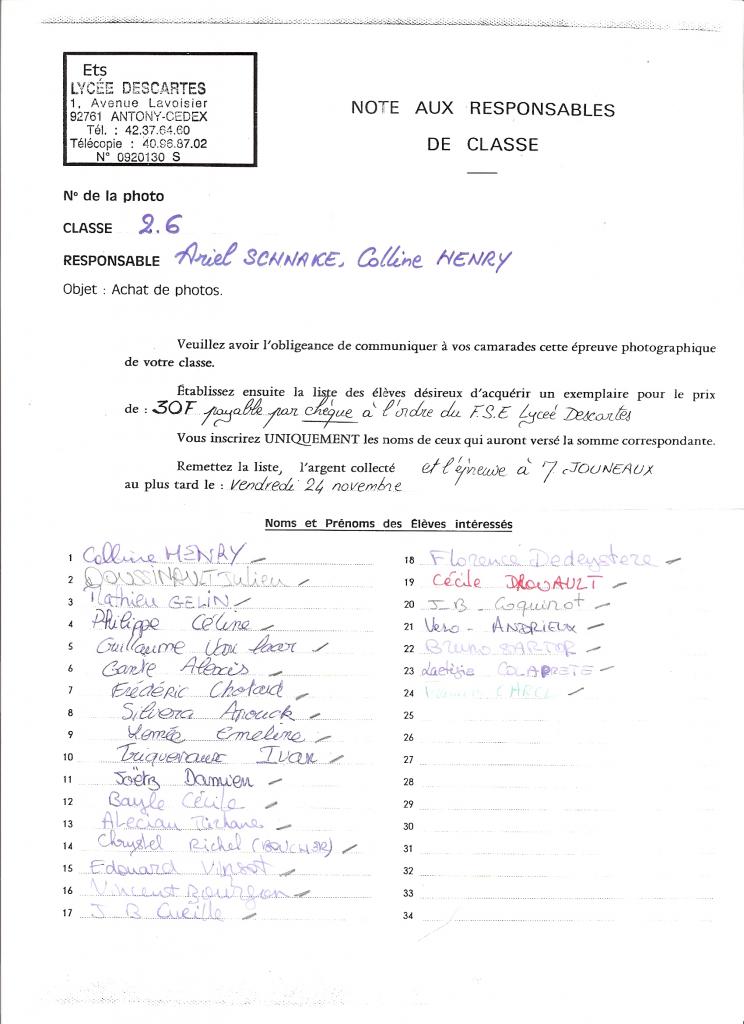 Ets
LYCÉE DESCARTES
1, Avenue Lavoisier
92761 ANTONY-CEDEX
Tél. : 42.37.64.60
Télécopie : 40.96.87.02
N° 0920130 S
NOTE AUX RESPONSABLES
DE CLASSE
N° de la photo
CLASSE 2.6
RESPONSABLE Ariel SCHNAKE, Colline HENRY
Objet : Achat de photos.
Veuillez avoir l'obligeance de communiquer à vos camarades cette épreuve photographique
de votre classe.
Établissez ensuite la liste des élèves désireux d'acquérir un exemplaire pour le prix
de : 30F payable par chèque à l'ordre du F.S.E Lyceé Descartes
Vous inscrirez UNIQUEMENT les noms de ceux qui auront versé la somme correspondante.
Remettez la liste, l'argent collecté et l'épreuve à 7 JOUNEAUX
au plus tard le : Vendredi 24 novembre
Noms et Prénoms des Élèves intéressés
1 Colline HENRY
2 DOUSSINAULT Julien
3 Mathieu GELIN
4 Philippe Céline
5 Guillaume Van
6 Alexis
7 Frédéric Chotard
8 Silvera Anouck
9 Lemée Emeline
10 Ivan
11 Joëtz Damien
12 Bayle Cécile
13 ALECIAN
14 Chrystel Richel (BOUCHER)
15 Edouard Vinsot
16 Vincent Bourgon
17 J B Cueille
18 Florence Dedeystere
19 Cécile DROUAULT
20 J-B - Coquinot
21 Vero - ANDRIEUX
22 Bruno SARTOR
23 Laetizia COLAPRETE
24
25
26
27
28
29
30
31
32
33
34